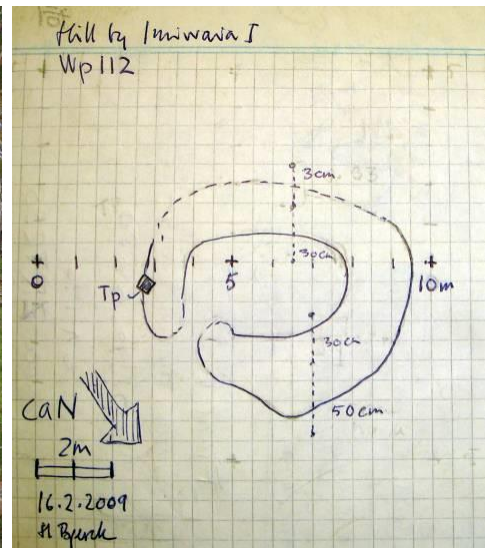 Hill by Imiwaia I
Wp 112
3cm
30cm
0
5
10m
Tp
30cm
50cm
caN
2m
16.2.2009